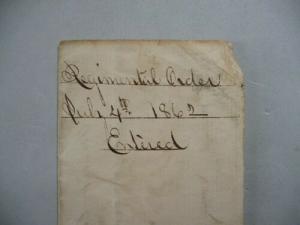 Regimental Order
July 4th 1862
Entered